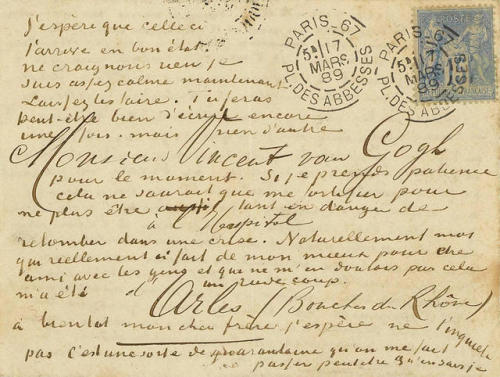 J'espère que celle ci
t'arrive en bon état.
ne craignons rien je
suis assez calme maintenant
Laissez les faire. Tu feras
peut-être bien d'écrire encore
une fois. mais rien d'autre
Monsieur Vincent van Gogh
pour le moment. Si je prends patience
cela ne saurait que me fortifier pour
ne plus être tant en danger de
à l'Hopital
retomber dans une crise. Naturellement moi
qui reellement ai fait de mon mieux pour etre
ami avec les gens et qui ne m'en doutais pas cela
m'a été un rude coup.
d'Arles (Bouches du Rhône)
à bientot mon cher frère j'espère ne t'inquiete
pas c'est une sorte de quarantaine qu'on me fait
passer peut etre qu'en sais je
PARIS_67
5E
17
MARS
89
PL. DES ABBESSES
PARIS_67
MARS
PL. DES ABBESSES
POSTE